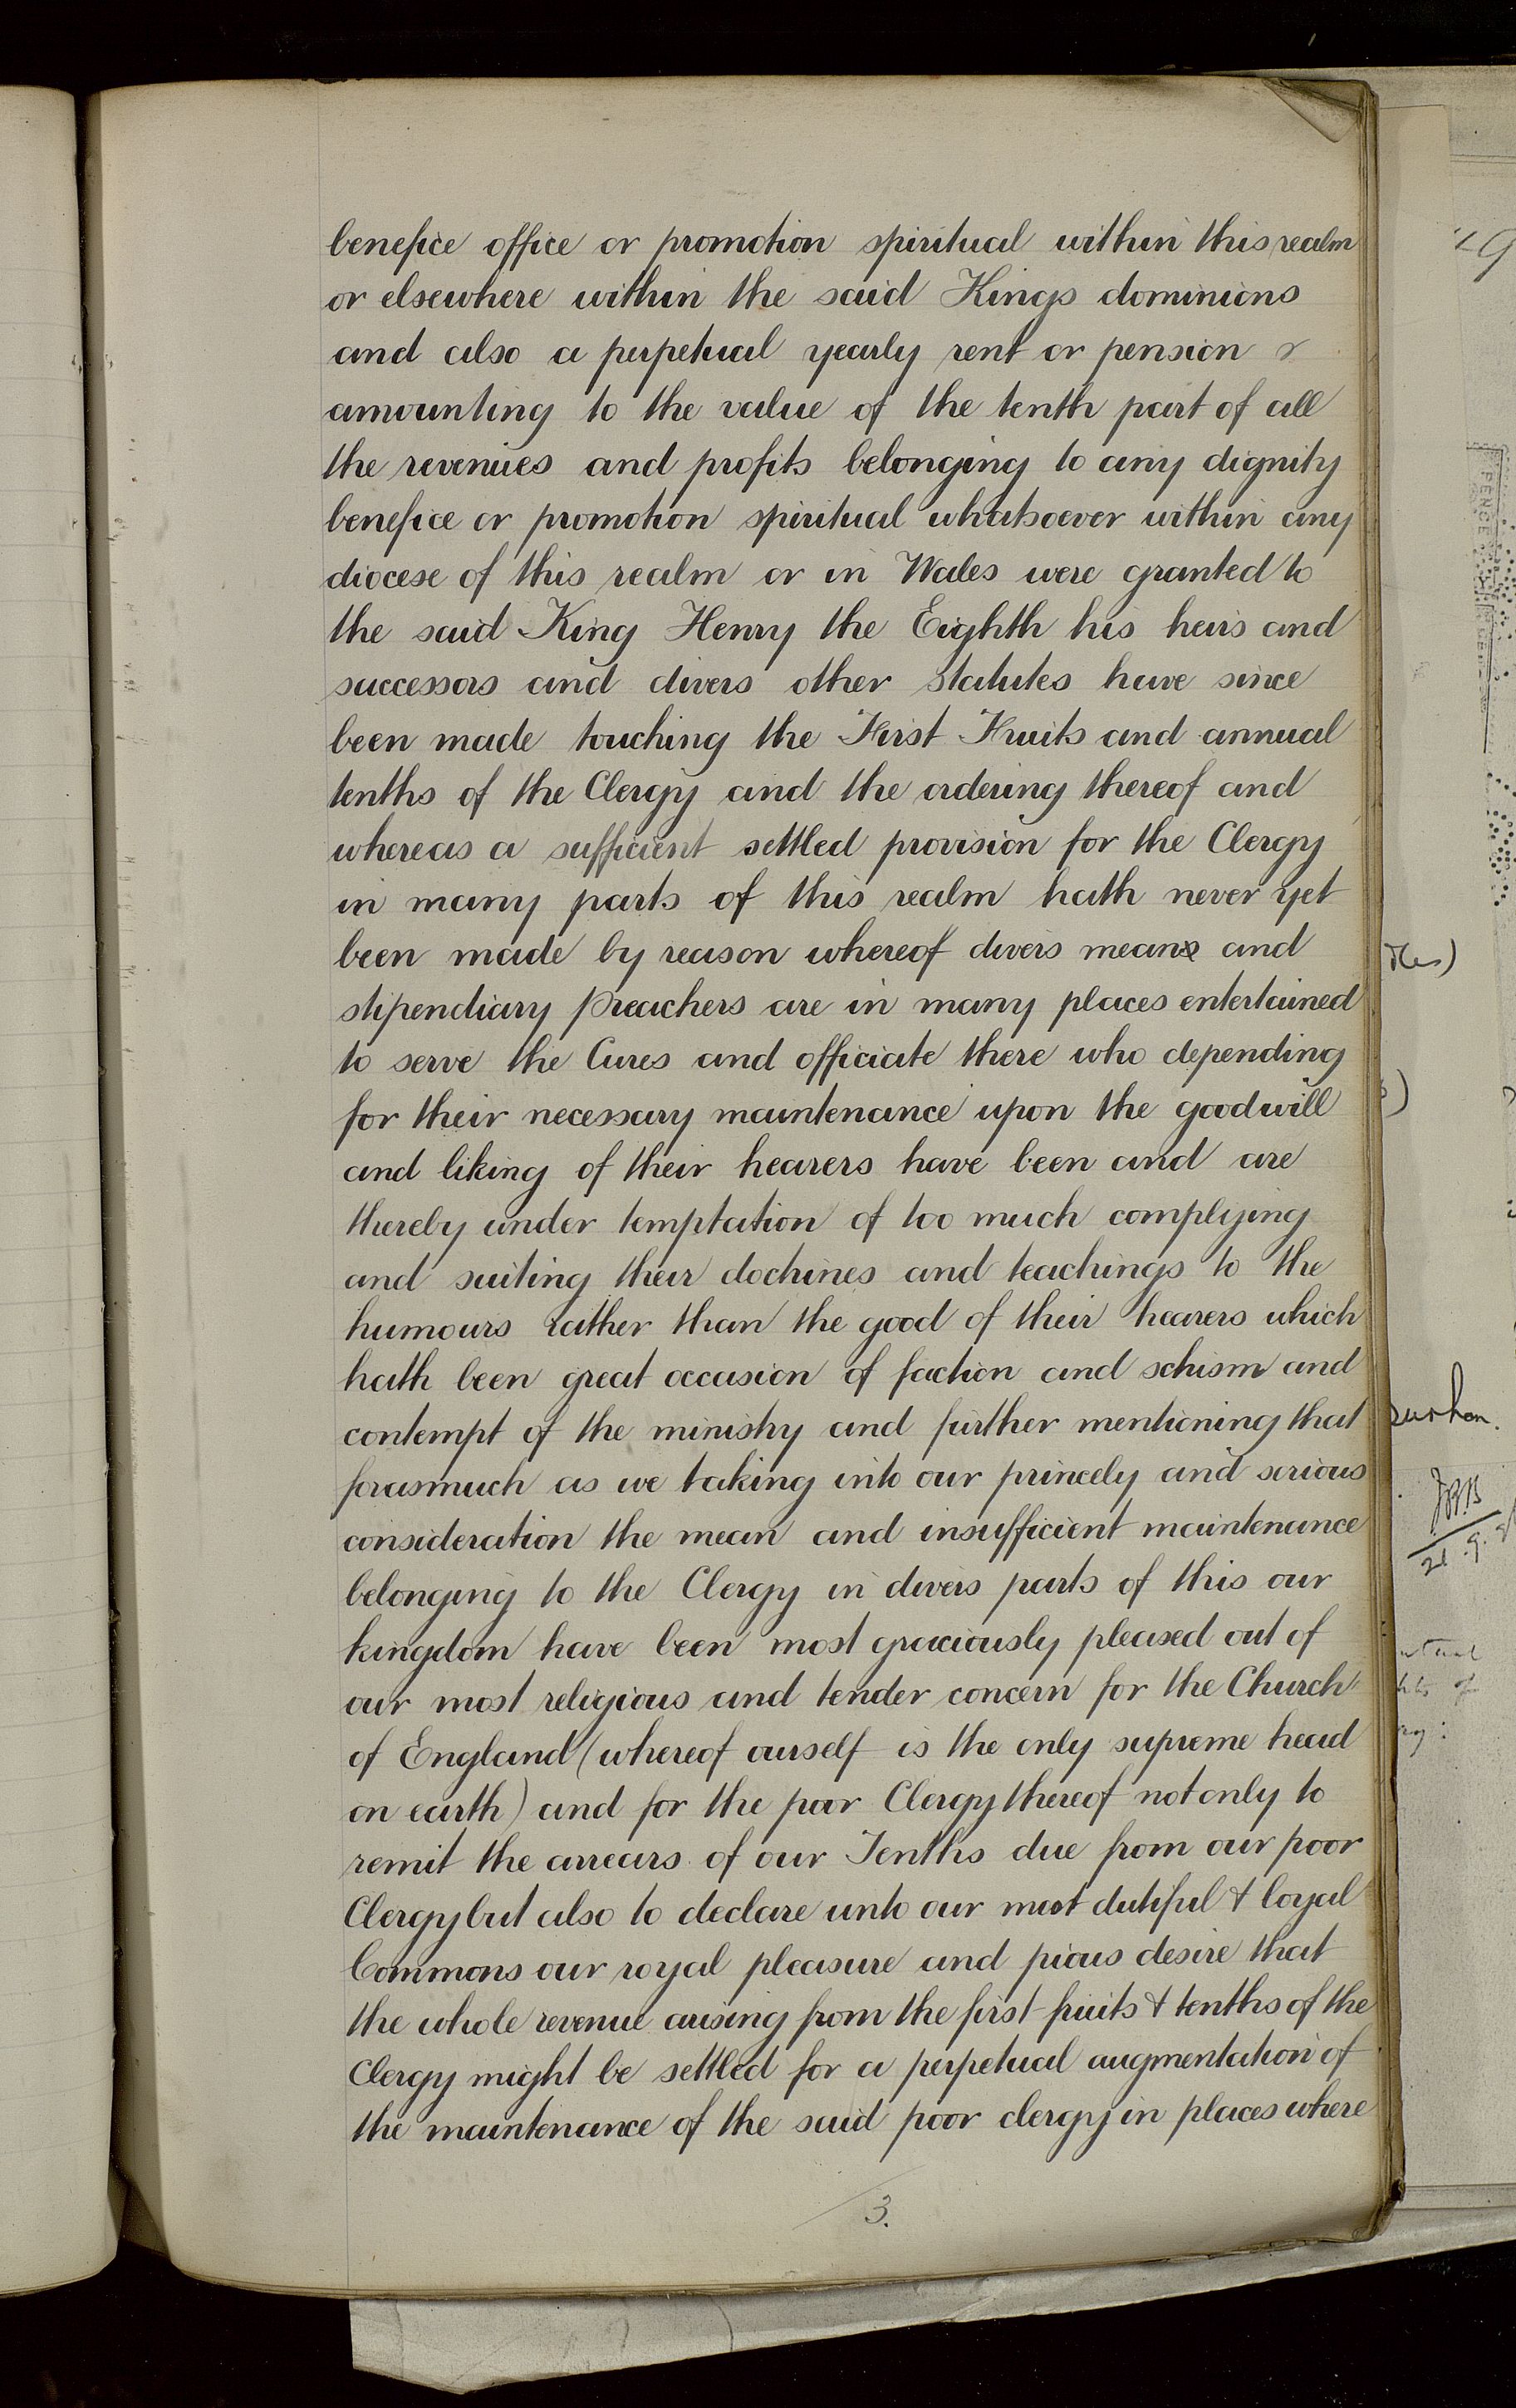 benefice office or promotion spiritual within this realm
or elsewhere within the said Kings dominions
and also a perpetual yearly rent or pension
amounting to the value of the tenth part of all
the revenues and profits belonging to any dignity
benefice or promotion spiritual whatsoever within any
diocese of this realm or in Wales were granted to
the said King Henry the Eighth his heirs and
successors and divers other Statutes have since
been made touching the First Fruits and annual
tenths of the Clergy and the ordering thereof and
whereas a sufficient settled provision for the Clergy
in many parts of this realm hath never yet
been made by reason whereof divers mean and
stipendiary Preachers are in many places entertained
to serve the Cures and officiate there who depending
for their necessary maintenance upon the goodwill
and liking of their hearers have been and are
thereby under temptation of too much complying
and suiting their doctrines and teachings to the
humours rather than the good of their hearers which
hath been great occasion of faction and schism and
contempt of the ministry and further mentioning that
forasmuch as we taking into our princely and serious
consideration the mean and insufficient maintenance
belonging to the Clergy in divers parts of this our
kingdom have been most graciously pleased out of
our most religious and tender concern for the Church
of England (whereof ourself is the only supreme head
on earth) and for the poor Clergy thereof not only to
remit the arrears of our Tenths due from our poor
Clergy but also to declare unto our most dutiful & loyal
Commons our royal pleasure and pious desire that
the whole revenue arising from the first fruits & tenths of the
Clergy might be settled for a perpetual augmentation of
the maintenance of the said poor clergy in places where
3.
PENCE